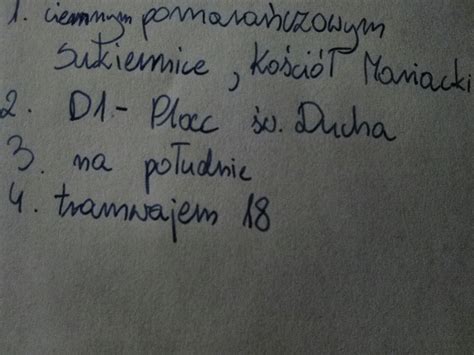 1. ciemnym pomarańczowym
Sukiennice, Kościół Mariacki
2. D1 - Plac św. Ducha
3. na południe
4. tramwajem 18